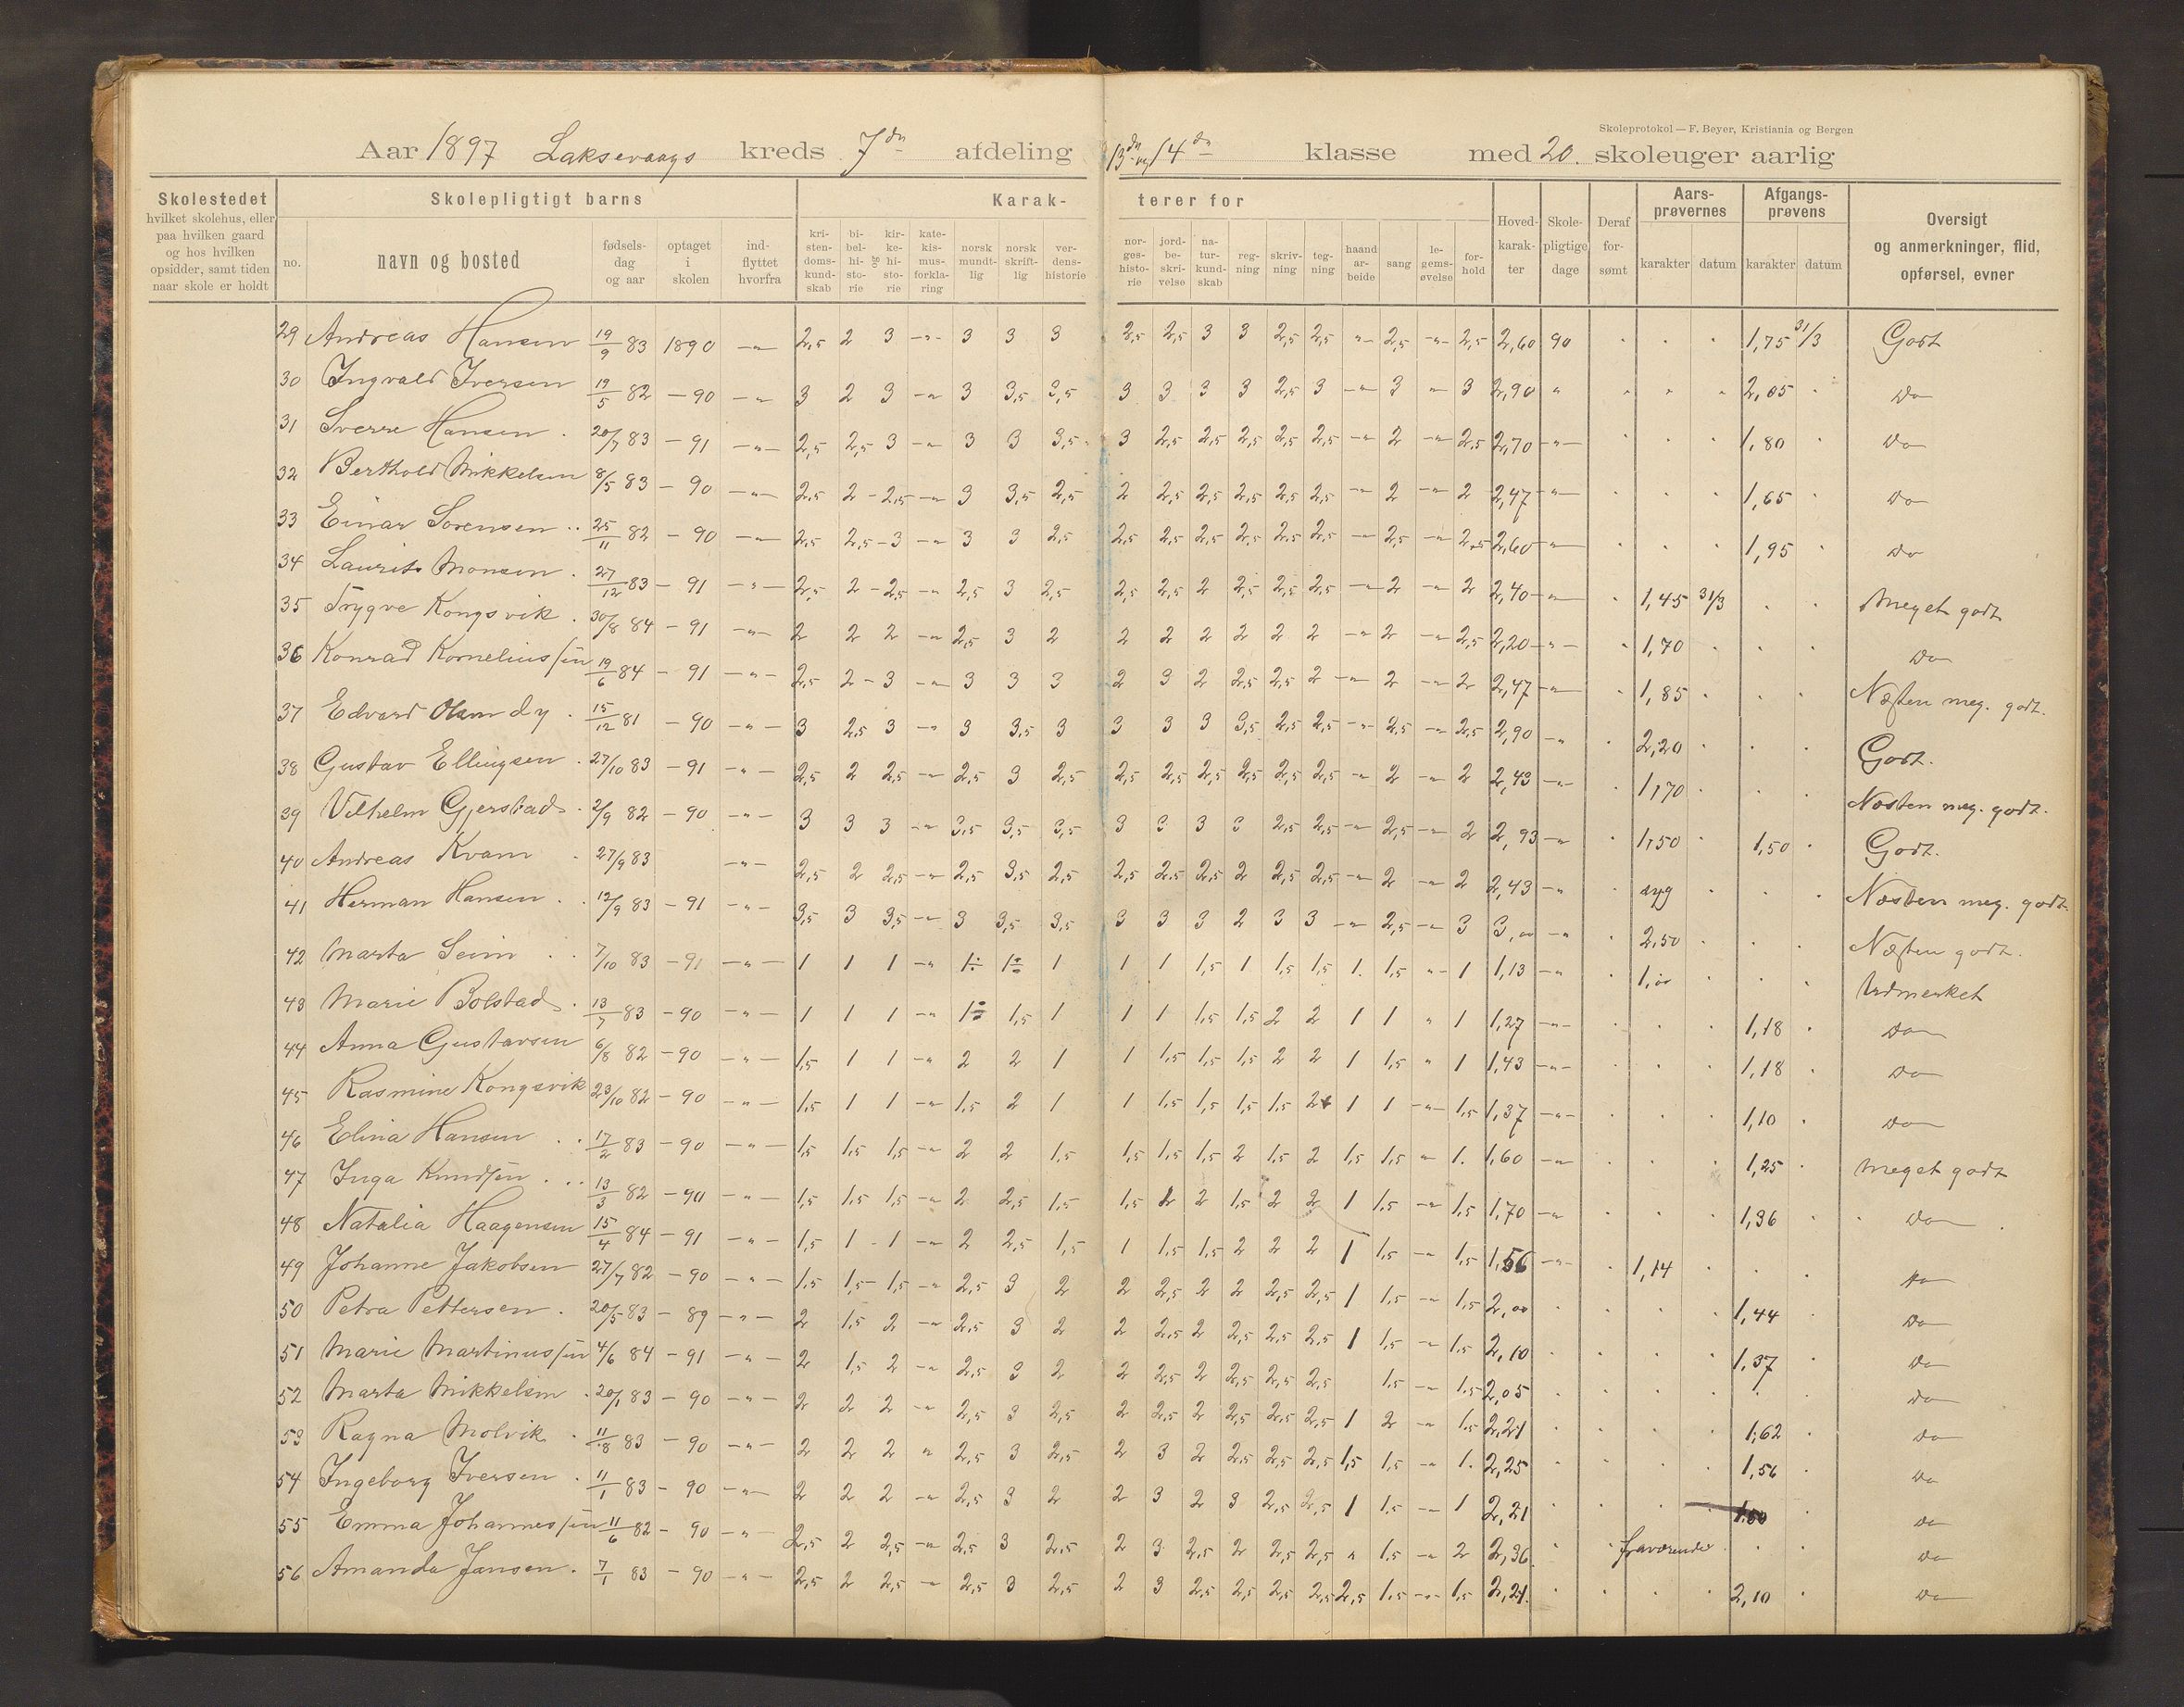 Skoleprotokol — F. Beyer, Kristiania og Bergen
Aar 1897 Laksevaags kreds 7de afdeling 13de og 14de klasse med 20. skoleuger aarlig
Skolestedet hvilket skolehus, eller paa hvilken gaard og hos hvilken opsidder, samt tiden naar skole er holdt
Skolepligtigt barns
no. navn og bosted fødselsdag og aar optaget i skolen indflyttet hvorfra
Karakterer for
kristendomskundskab bibelhistorie og kirkehistorie katekismusforklaring norsk mundtlig norsk skriftlig verdenshistorie norgeshistorie jordbeskrivelse naturkundskab regning skrivning tegning haandarbeide sang legemsøvelse forhold
Hovedkarakter Skolepligtige dage Deraf forsømt
Aarsprøvernes karakter datum
Afgangsprøvens karakter datum
Oversigt og anmerkninger, flid, opførsel, evner
29 Andreas Hansen 19/9 83 1890 -"- 2,5 2 3 -"- 3 3 3 2,5 2,5 3 3 2,5 2,5 "- 2,5 -"- 2,5 2,60 90 1,75 31/3 Godt
30 Ingvald Iversen 19/5 82 - 90 -"- 3 2 3 -"- 3 3,5 3,5 3 3 3 3 2,5 3 -"- 3 "- 3 2,90 " 2,05 Do
31 Sverre Hansen 20/7 83 - 91 -"- 2,5 2,5 3 -"- 3 3 3,5 3 2,5 2,5 2,5 2,5 2,5 -"- 2 -"- 2,5 2,70 -"- 1,80 Do
32 Berthold Mikkelsen 8/5 83 - 90 -"- 2,5 2 - 2,5 -"- 3 3,5 2,5 2 2,5 2,5 2,5 2,5 2,5 -"- 2 -"- 2 2,47 -"- 1,65 Do
33 Einar Sørensen 25/11 82 - 90 -"- 2,5 2,5 - 3 -"- 3 3 2,5 2,5 2,5 2,5 2,5 2,5 2,5 -"- 2,5 -"- 2,5 2,60 -"- 1,95 Do
34 Laurits Monsen 27/12 83 - 91 -"- 2,5 2 - 2,5 -"- 2,5 3 2,5 2,5 2,5 2 2,5 2,5 2,5 -"- 2 -"- 2 2,40 -"- 1,45 31/3 Meget godt
35 Trygve Kongsvik 30/8 84 - 91 -"- 2 2 2 -"- 2,5 3 2 2 2 2 2 2 2 -"- 2 -"- 2,5 2,20 -"- 1,70 Do
36 Konrad Korneliussen 19/6 84 - 91 -"- 2,5 2 - 3 -"- 3 3 3 2 3 2 2,5 2,5 2 -"- 2 -"- 2 2,47 -"- 1,85 Næsten meg. godt.
37 Edvard Olsen dy 15/12 81 - 90 -"- 3 2,5 3 -"- 3 3,5 3 3 3 3 3,5 2,5 2,5 -"- 2,5 -"- 2,5 2,90 -"- 2,20 Godt.
38 Gustav Ellingsen 27/10 83 - 91 -"- 2,5 2 2,5 -"- 2,5 3 2,5 2,5 2,5 2,5 2,5 2,5 2,5 -"- 2 -"- 2 2,43 -"- 1,70 Næsten meg. godt.
39 Vilhelm Gjerstad 2/9 82 - 90 -"- 3 3 3 -"- 3,5 3,5 3,5 3 3 3 3 2,5 2,5 -"- 2,5 -"- 2 2,93 -"- 1,50 1,50 Godt.
40 Andreas Kvam 27/9 83 -"- 2,5 2 2,5 -"- 2,5 3,5 2,5 2,5 2,5 2,5 2 2,5 2,5 -"- 2 -"- 2 2,43 -"- syg Næsten meg. godt
41 Herman Hansen 12/9 83 - 91 -"- 3,5 3 3,5 -"- 3 3,5 3,5 3 3 3 2 3 3 -"- 2,5 -"- 3 3,00 -"- 2,50 Næsten godt.
42 Marta Seim 7/10 83 - 91 -"- 1 1 1 -"- 1÷ 1÷ 1 1 1 1,5 1 1,5 1,5 1. 1,5 "- 1 1,13 -"- 1,00 Udmerket
43 Marie Bolstad 13/7 83 - 90 -"- 1 1 1 -"- 1÷ 1,5 1 1 1 1,5 1,5 2 2 1 1 " 1 1,27 -"- 1,18 Do
44 Anna Gustavsen 6/8 82 - 90 -"- 1,5 1 1 -"- 2 2 1 1 1,5 1,5 1,5 2 2 1 1,5 " 1 1,43 -"- 1,18 Do
45 Rasmine Kongsvik 23/10 82 - 90 -"- 1,5 1 1 -"- 1,5 2 1 1 1,5 1,5 1,5 1,5 2 1 1 -"- 1,5 1,37 -"- 1,10 Do
46 Elina Hansen 17/2 83 - 90 -"- 1,5 1,5 1,5 -"- 2 2 1,5 1,5 1,5 1,5 2 1,5 2 1,5 1,5 "- 1. 1,60 -"- 1,25 Meget godt
47 Inga Knudsen 13/3 82 - 90 -"- 1,5 1,5 1,5 -"- 2 2,5 1,5 1,5 2 2 1,5 2 2 1 1,5 -"- 1,5 1,70 -"- 1,36 Do
48 Natalia Haagensen 15/4 84 - 91 -"- 1,5 1 - 1 -"- 2 2,5 1,5 1 1,5 1,5 2 2 2 1 1,5 -"- 1,5 1,56 -"- 1,14 Do
49 Johanne Jakobsen 27/7 82 - 90 -"- 1,5 1,5 - 1,5 -"- 2,5 3 2 2 2,5 2 2 2,5 2,5 1 1,5 -"- 1,5 2,00 1,44 Do
50 Petra Pettersen 20/5 83 - 89 -"- 2 1,5 2 -"- 2,5 3 2 2 2,5 2 2,5 2,5 2,5 1 1,5 -"- 1,5 2,10 1,37 Do
51 Marie Martinussen 4/6 84 - 91 -"- 2 1,5 2 -"- 2,5 3 2 2 2,5 2 2,5 2,5 2,5 1,5 -"- 1,5 2,05 Do
52 Marta Mikkelsen 20/1 83 - 90 -"- 2 2 2 -"- 2,5 3 2,5 2 2,5 2 2,5 2,5 2,5 1 2 -"- 1,5 2,21 1,62 Do
53 Ragna Molvik 11/8 83 - 90 -"- 2 2 2 " 2,5 3 2,5 2 3 2 2,5 2,5 2,5 1,5 1,5 -"- 1. 2,25 1,56 Do
54 Ingeborg Iversen 11/1 83 - 90 -"- 2 2 2 -"- 2,5 3 2 2 3 2 3 2,5 2,5 1 1,5 -"- 1 2,21 Do
55 Emma Johannessen 11/6 82 - 90 -"- 2,5 2 2,5 -"- 2,5 3 2,5 2 3 2,5 2 2,5 2,5 " 1,5 -"- 2 2,36 fraværende Do
56 Amanda Jansen 7/1 83 - 90 -"- 2,5 2 2,5 -"- 2,5 3 2,5 2 3 2,5 2,5 2,5 2,5 2,5 1,5 -"- 1,5 2,21 2,10 Do